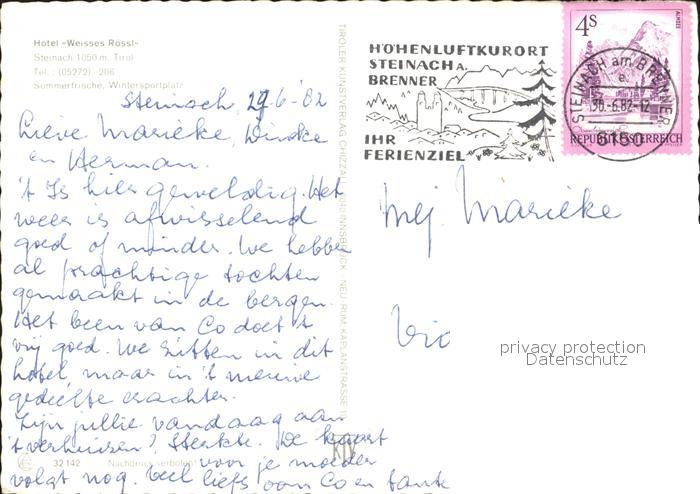 Hotel »Weisses Rössl«
Steinach 1050 m, Tirol
Tel.: (05272) 206
Sommerfrische, Wintersportplatz
Steinach 29-6-'82
Lieve Marieke, Wineke
en Herman.
't Is hier geweldig. Het
weer is afwisselend
goed of minder. We hebben
al prachtige tochten
gemaakt in de bergen.
Het been van Co doet 't
vrij goed. We zitten in dit
hotel maar in 't nieuwe
gedeelte erachter.
Zijn jullie vandaag aan
't verhuizen? Sterkte. De kaart
voor je moeder
volgt nog. Veel liefs oom Co en tante
32 142 Nachdruck verboten
TIROLER KUNSTVERLAG CHIZZALI INNSBRUCK NEU-RUM KAPLANSTRASSE
KIV
HÖHENLUFTKURORT
STEINACH A.
BRENNER
IHR
FERIENZIEL
4s
ALMSEE
REPUBLIK ÖSTERREICH
STEINACH am BRENNER
30.-6.82-12
6150
Mej. Marieke
privacy protection
Datenschutz